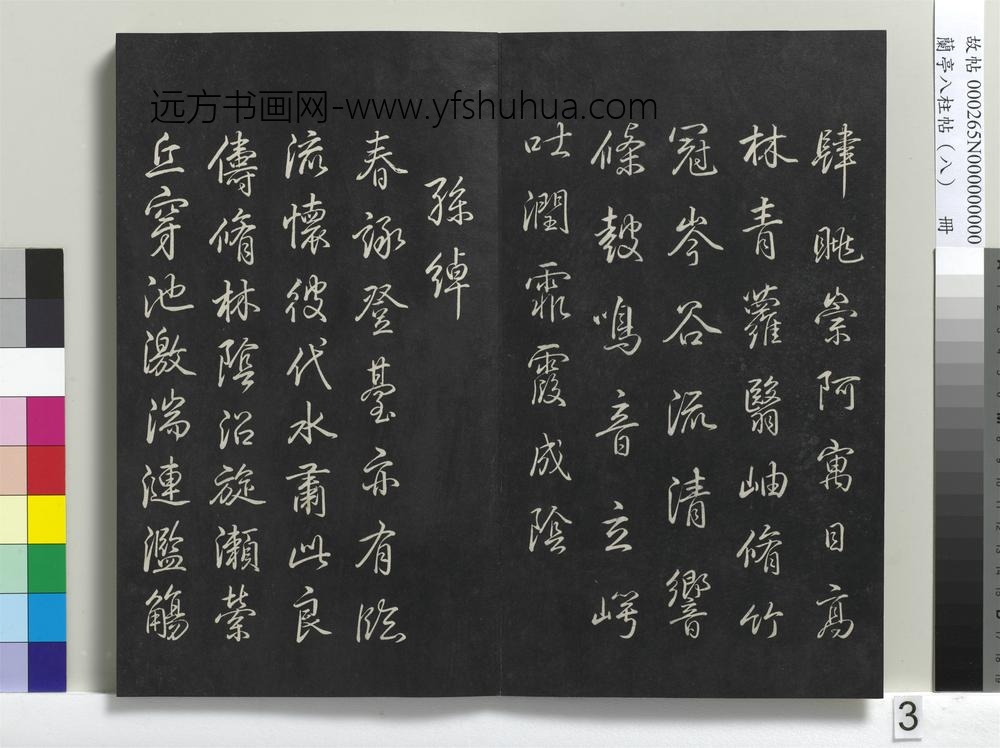 远方书画网-www.yfshuhua.com
肆眺崇阿寓目高
林青蘿翳岫脩竹
冠岑谷流清響
條鼓鳴音立崿
吐潤霏霧成陰
孫綽
春詠登臺亦有臨
流懷彼伐木肅此良
儔脩林陰沼旋瀨縈
丘穿池激湍漣濫觴
故帖 000265N000000000
蘭亭八柱帖（八） 冊
3